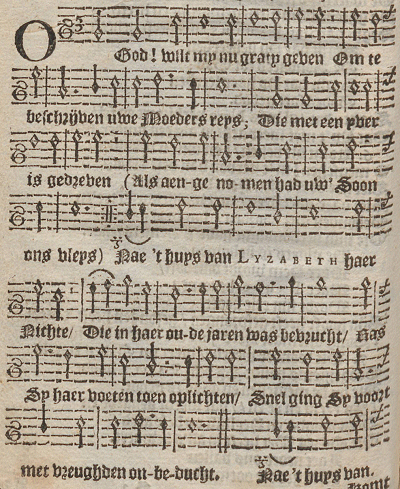 O God! wilt my nu gratij geven Om te
beschrijven uwe Moeders reys, Die met een yver
is gedreven (Als aen-ge no-men had uw' Soon
ons vleys) Nae 't huys van LYZABETH haer
Nichte/ Die in haer ou-de jaren was bevrucht/ Ras
Sy haer voeten toen oplichten/ Snel ging Sy voort
met vreughden on-be-ducht. Nae 't huys van.
komt